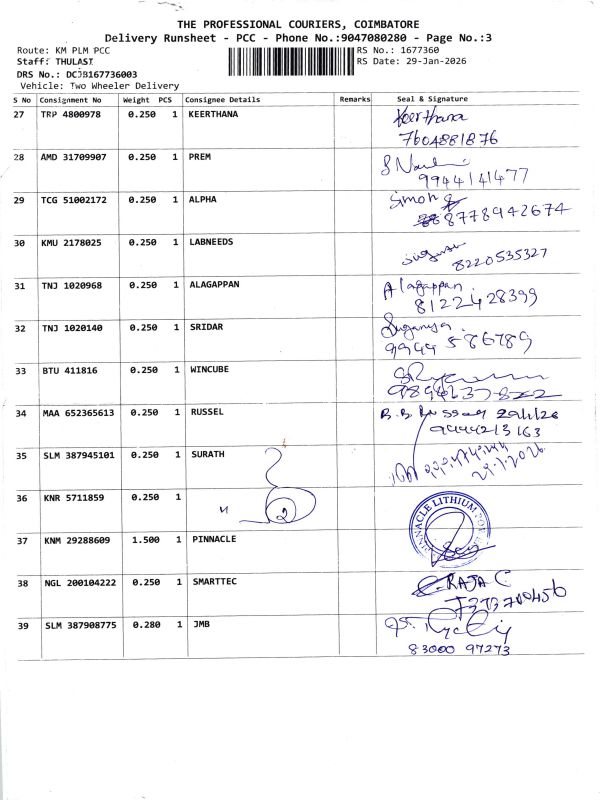 THE PROFESSIONAL COURIERS, COIMBATORE
Delivery Runsheet - PCC - Phone No.:9047080280 - Page No.:3
Route: KM PLM PCC RS No.: 1677360
Staff: THULASI RS Date: 29-Jan-2026
DRS No.: DCJB167736003
Vehicle: Two Wheeler Delivery
S No Consignment No Weight PCS Consignee Details Remarks Seal & Signature
27 TRP 4800978 0.250 1 KEERTHANA Keerthana
7604881876
28 AMD 31709907 0.250 1 PREM
9944141477
29 TCG 51002172 0.250 1 ALPHA Simon
8778942674
30 KMU 2178025 0.250 1 LABNEEDS
8220535327
31 TNJ 1020968 0.250 1 ALAGAPPAN Alagappan
8122428399
32 TNJ 1020140 0.250 1 SRIDAR Suganya
9944 586789
33 BTU 411816 0.250 1 WINCUBE
34 MAA 652365613 0.250 1 RUSSEL B.B. Russel 29/1/26
9444213163
35 SLM 387945101 0.250 1 SURATH
29.1.2026
36 KNR 5711859 0.250 1
2
37 KNM 29288609 1.500 1 PINNACLE PINNACLE LITHIUM
38 NGL 200104222 0.250 1 SMARTTEC RAJA C
7373700456
39 SLM 387908775 0.280 1 JMB
83000 97273